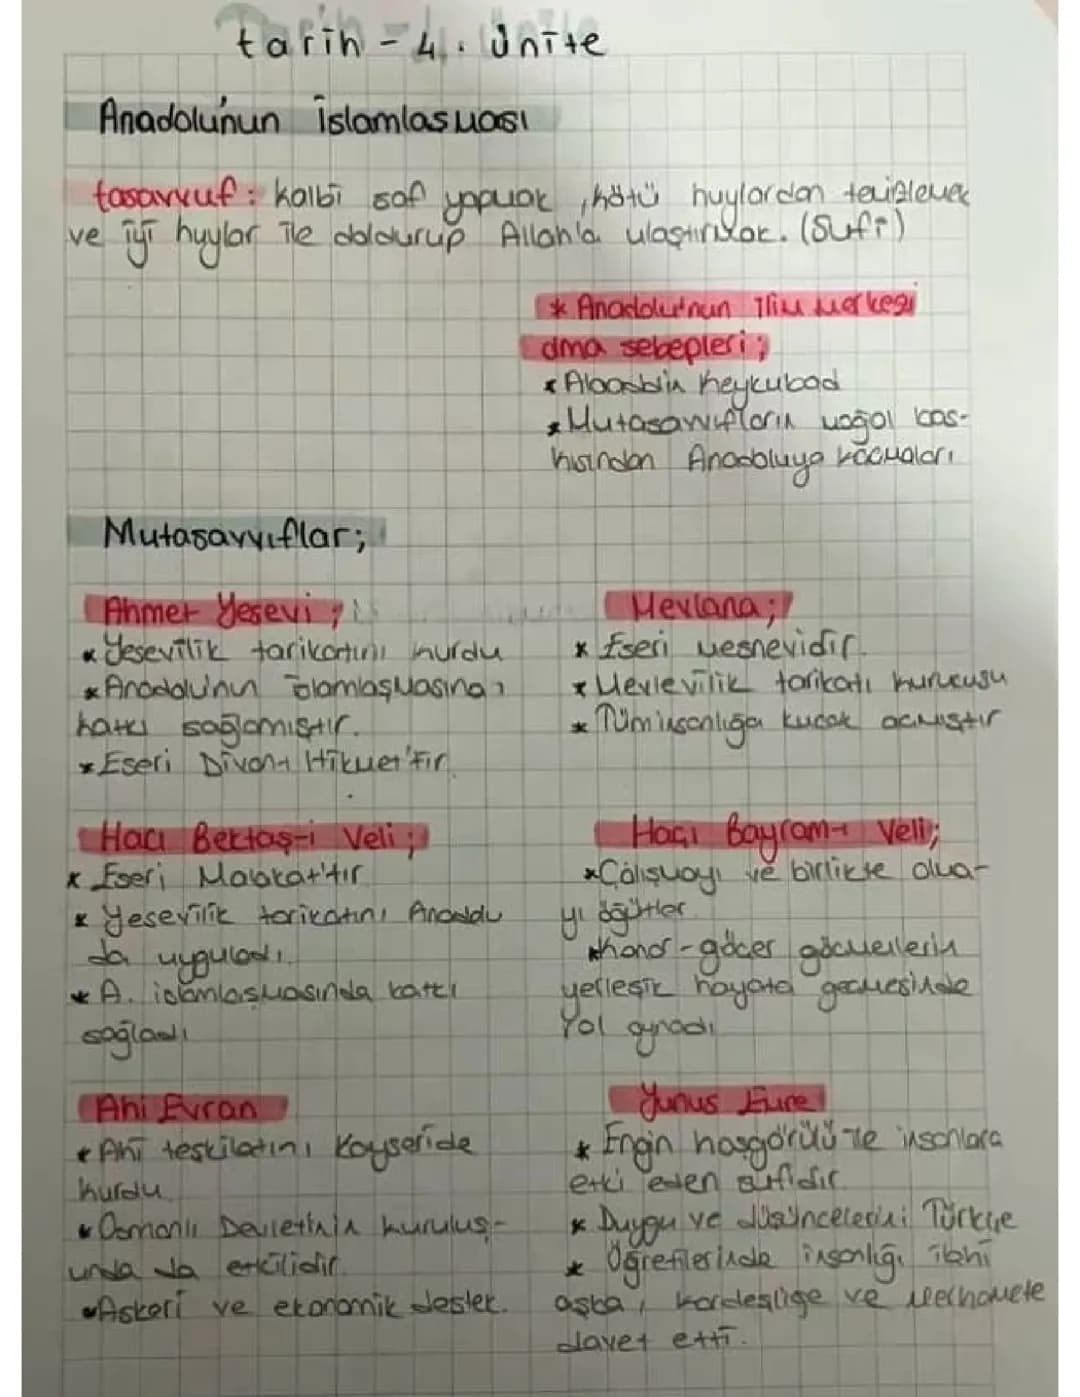 tarih - 4. Ünite
Anadolu'nun İslamlaşması
tasavvuf: kalbi saf yapmak, kötü huylardan temizlemek
ve iyi huylar ile doldurup Allah'a ulaştırmak. (Sufi)
* Anadolu'nun İlim merkezi
olma sebepleri;
* Alaaddin Keykubad
* Mutasavvıfların moğol bas-
kısından Anadoluya kaçmaları
Mutasavvıflar;
Ahmet Yesevi;
* Yesevilik tarikatını kurdu
* Anadolu'nun İslamlaşmasına
katkı sağlamıştır.
* Eseri Divan-ı Hikmet'tir.
Mevlana;
* Eseri mesnevidir.
* Mevlevilik tarikatı kurucusu
* Tüm insanlığa kucak açmıştır
Hacı Bektaş-i Veli;
* Eseri Makalat'tır
* Yesevilik tarikatını Anadolu
da uyguladı.
* A. islamlaşmasında katkı
sağladı
Hacı Bayram-ı Veli;
* Çalışmayı ve birlikte olma-
yı öğütler.
* konar-göçer göçmenlerin
yerleşik hayata geçmesinde
rol oynadı
Ahi Evran
* Ahi teşkilatını Kayseride
kurdu
* Osmanlı Devletinin kuruluş-
unda da etkilidir.
* Askeri ve ekonomik destek.
Yunus Emre
* Engin hoşgörülü ile insanlara
etki eden sufidir.
* Duygu ve düşüncelerini Türkçe
* Öğretilerinde insanlığı ilahi
aşka, kardeşliğe ve merhamete
davet etti.